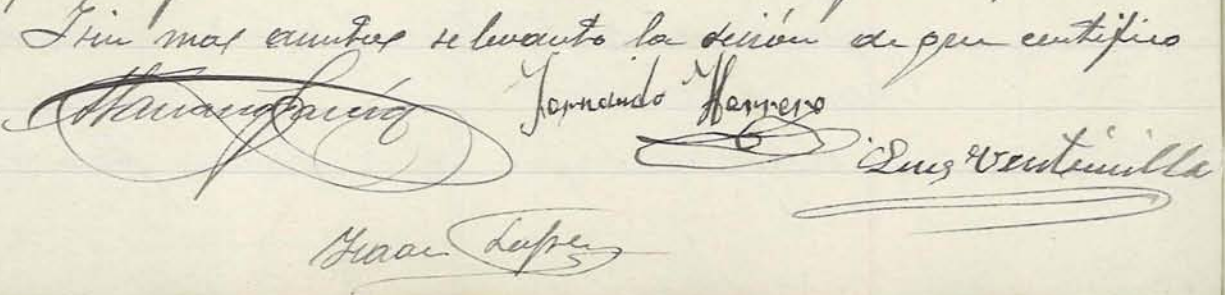 Y sin mas asuntos se levanto la sesión de que certifico
Mariano García
Fernando Herrero
Luis Ventimilla
Isaac Lopez